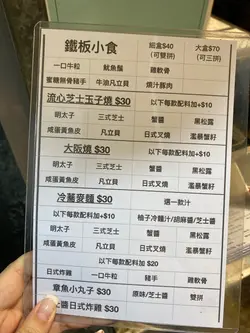 鐵板小食 細盒$40 大盒$70
(可雙拼) (可三拼)
一口牛粒 魷魚鬚 雞軟骨
蜜糖無骨豬手 牛油凡立貝 燒汁豚肉
流心芝士玉子燒 $30 以下每款配料加+$10
明太子 三式芝士 蟹肉 黑松露
咸蛋黃魚皮 凡立貝 日式叉燒 濫暴蟹籽
大阪燒 $30 以下每款配料加+$10
明太子 三式芝士 蟹肉 黑松露
咸蛋黃魚皮 凡立貝 日式叉燒 濫暴蟹籽
冷蕎麥麵 $30 選一款汁
以下每款配料加+$10 柚子冷麵汁/胡麻醬/芝士醬
明太子 三式芝士 蟹肉 黑松露
咸蛋黃魚皮 凡立貝 日式叉燒 濫暴蟹籽
以下每款配料加 $20
日式炸雞 一口牛粒 豬手 雞軟骨
章魚小丸子 $30 原味/芝士醬 雙拼
醬日式炸雞 $30